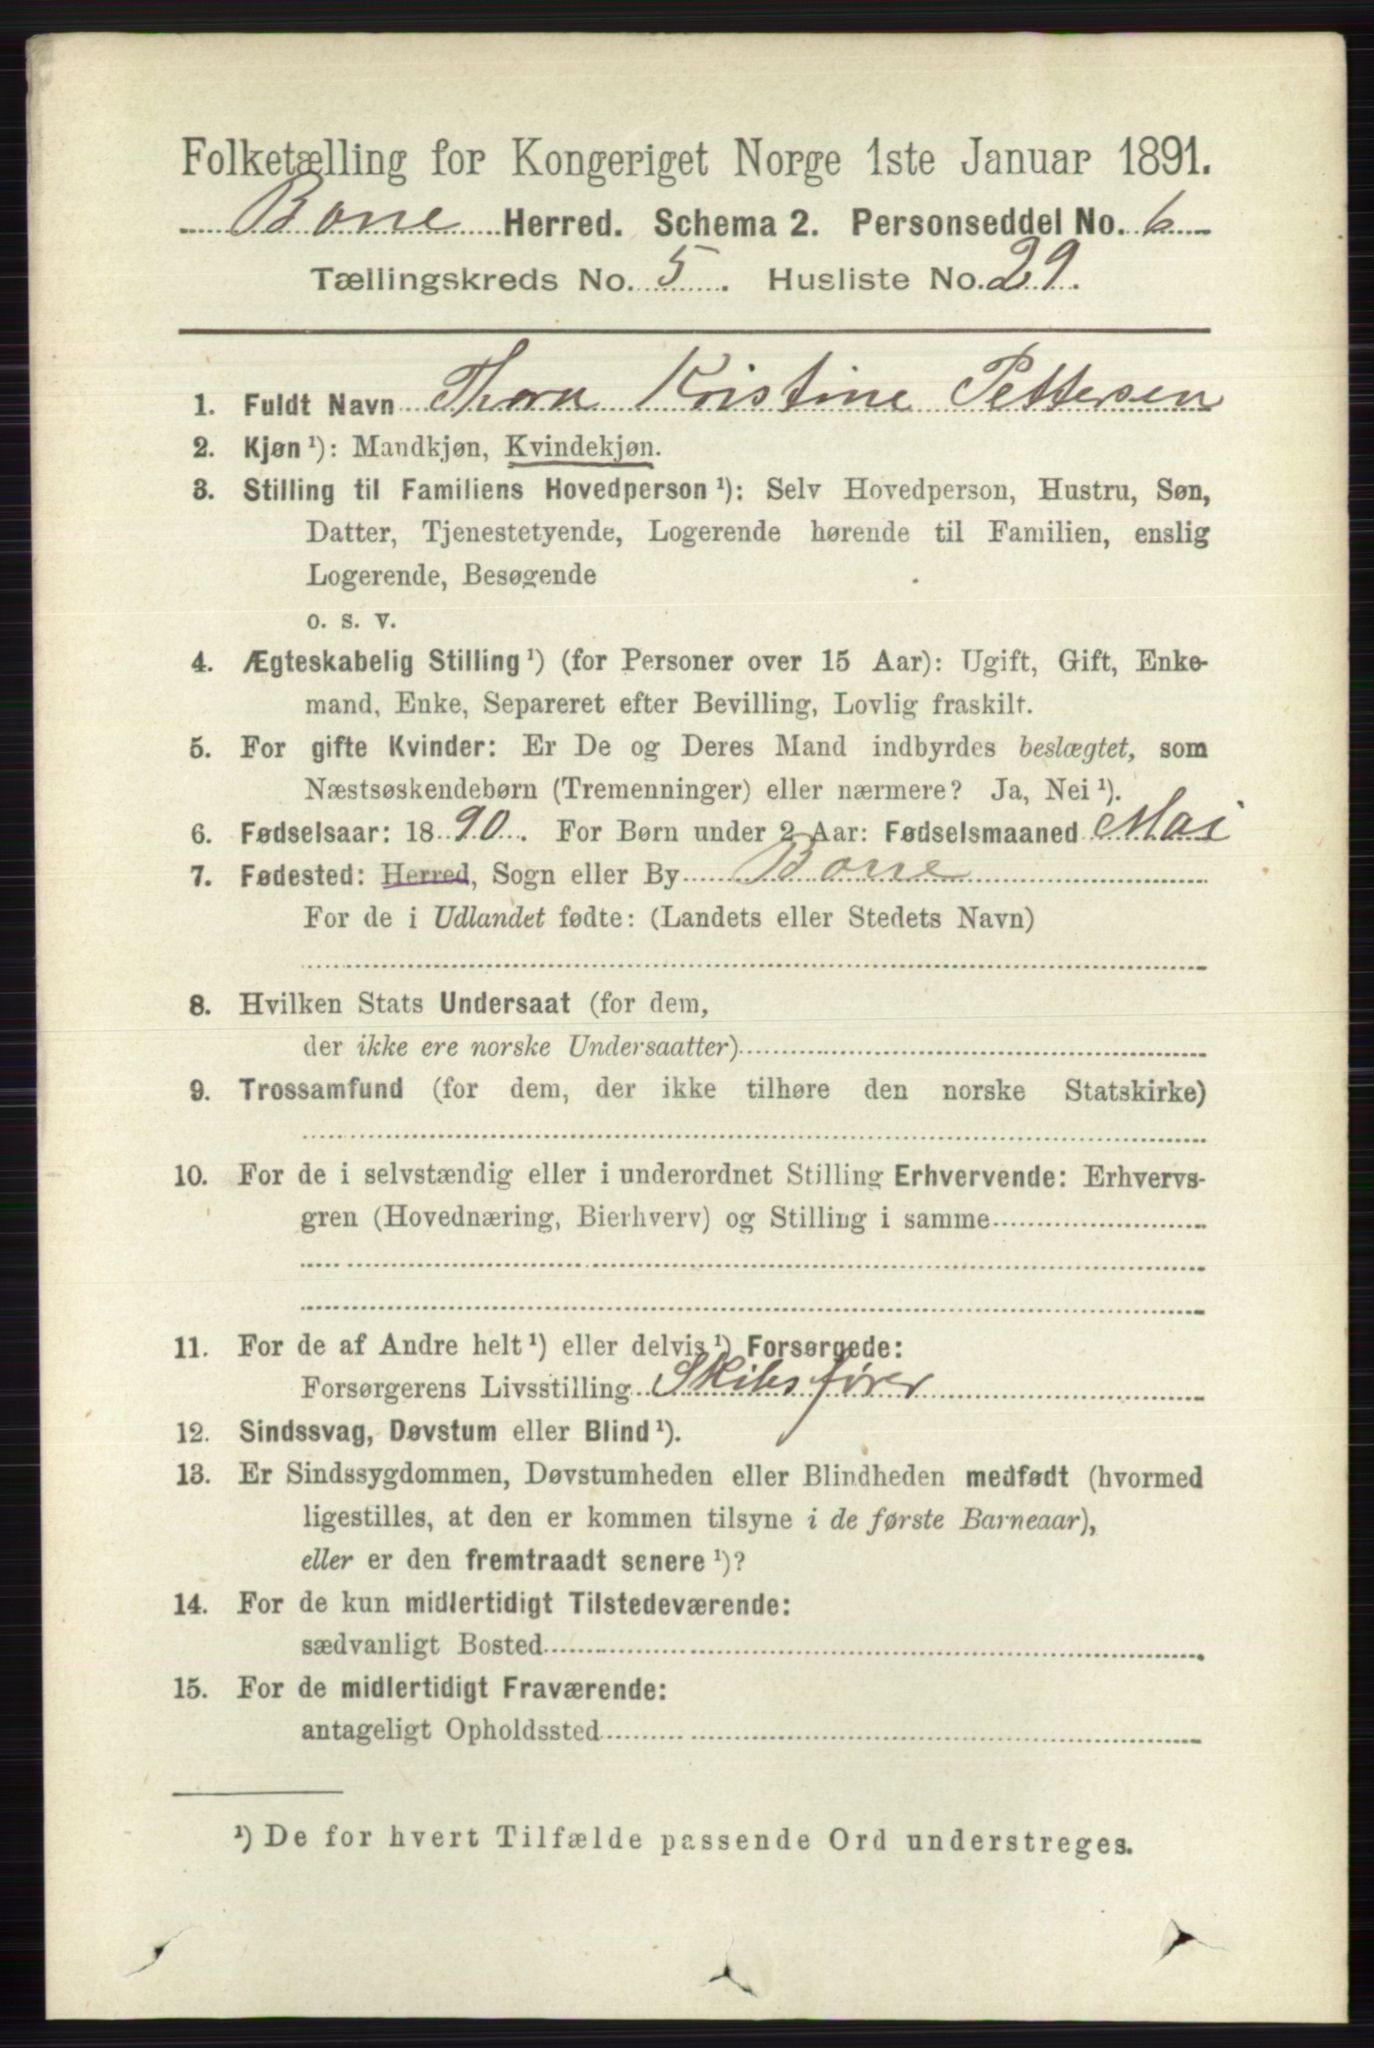 Folketælling for Kongeriget Norge 1ste Januar 1891.
Borre Herred. Schema 2. Personseddel No. 6
Tællingskreds No. 5. Husliste No. 29.
1. Fuldt Navn Thora Kristine Pettersen
2. Kjøn ¹): Mandkjøn, Kvindekjøn.
3. Stilling til Familiens Hovedperson ¹): Selv Hovedperson, Hustru, Søn,
Datter, Tjenestetyende, Logerende hørende til Familien, enslig
Logerende, Besøgende
o. s. v.
4. Ægteskabelig Stilling ¹) (for Personer over 15 Aar): Ugift, Gift, Enke-
mand, Enke, Separeret efter Bevilling, Lovlig fraskilt.
5. For gifte Kvinder: Er De og Deres Mand indbyrdes beslægtet, som
Næstsøskendebørn (Tremenninger) eller nærmere? Ja, Nei ¹).
6. Fødselsaar: 1890. For Børn under 2 Aar: Fødselsmaaned Mai
7. Fødested: Herred, Sogn eller By Borre
For de i Udlandet fødte: (Landets eller Stedets Navn)
8. Hvilken Stats Undersaat (for dem,
der ikke ere norske Undersaatter)
9. Trossamfund (for dem, der ikke tilhøre den norske Statskirke)
10. For de i selvstændig eller i underordnet Stilling Erhvervende: Erhvervs-
gren (Hovednæring, Bierhverv) og Stilling i samme
11. For de af Andre helt ¹) eller delvis ¹) Forsørgede:
Forsørgerens Livsstilling Skibsfører
12. Sindssvag, Døvstum eller Blind ¹).
13. Er Sindssygdommen, Døvstumheden eller Blindheden medfødt (hvormed
ligestilles, at den er kommen tilsyne i de første Barneaar),
eller er den fremtraadt senere ¹)?
14. For de kun midlertidigt Tilstedeværende:
sædvanligt Bosted
15. For de midlertidigt Fraværende:
antageligt Opholdssted
¹) De for hvert Tilfælde passende Ord understreges.